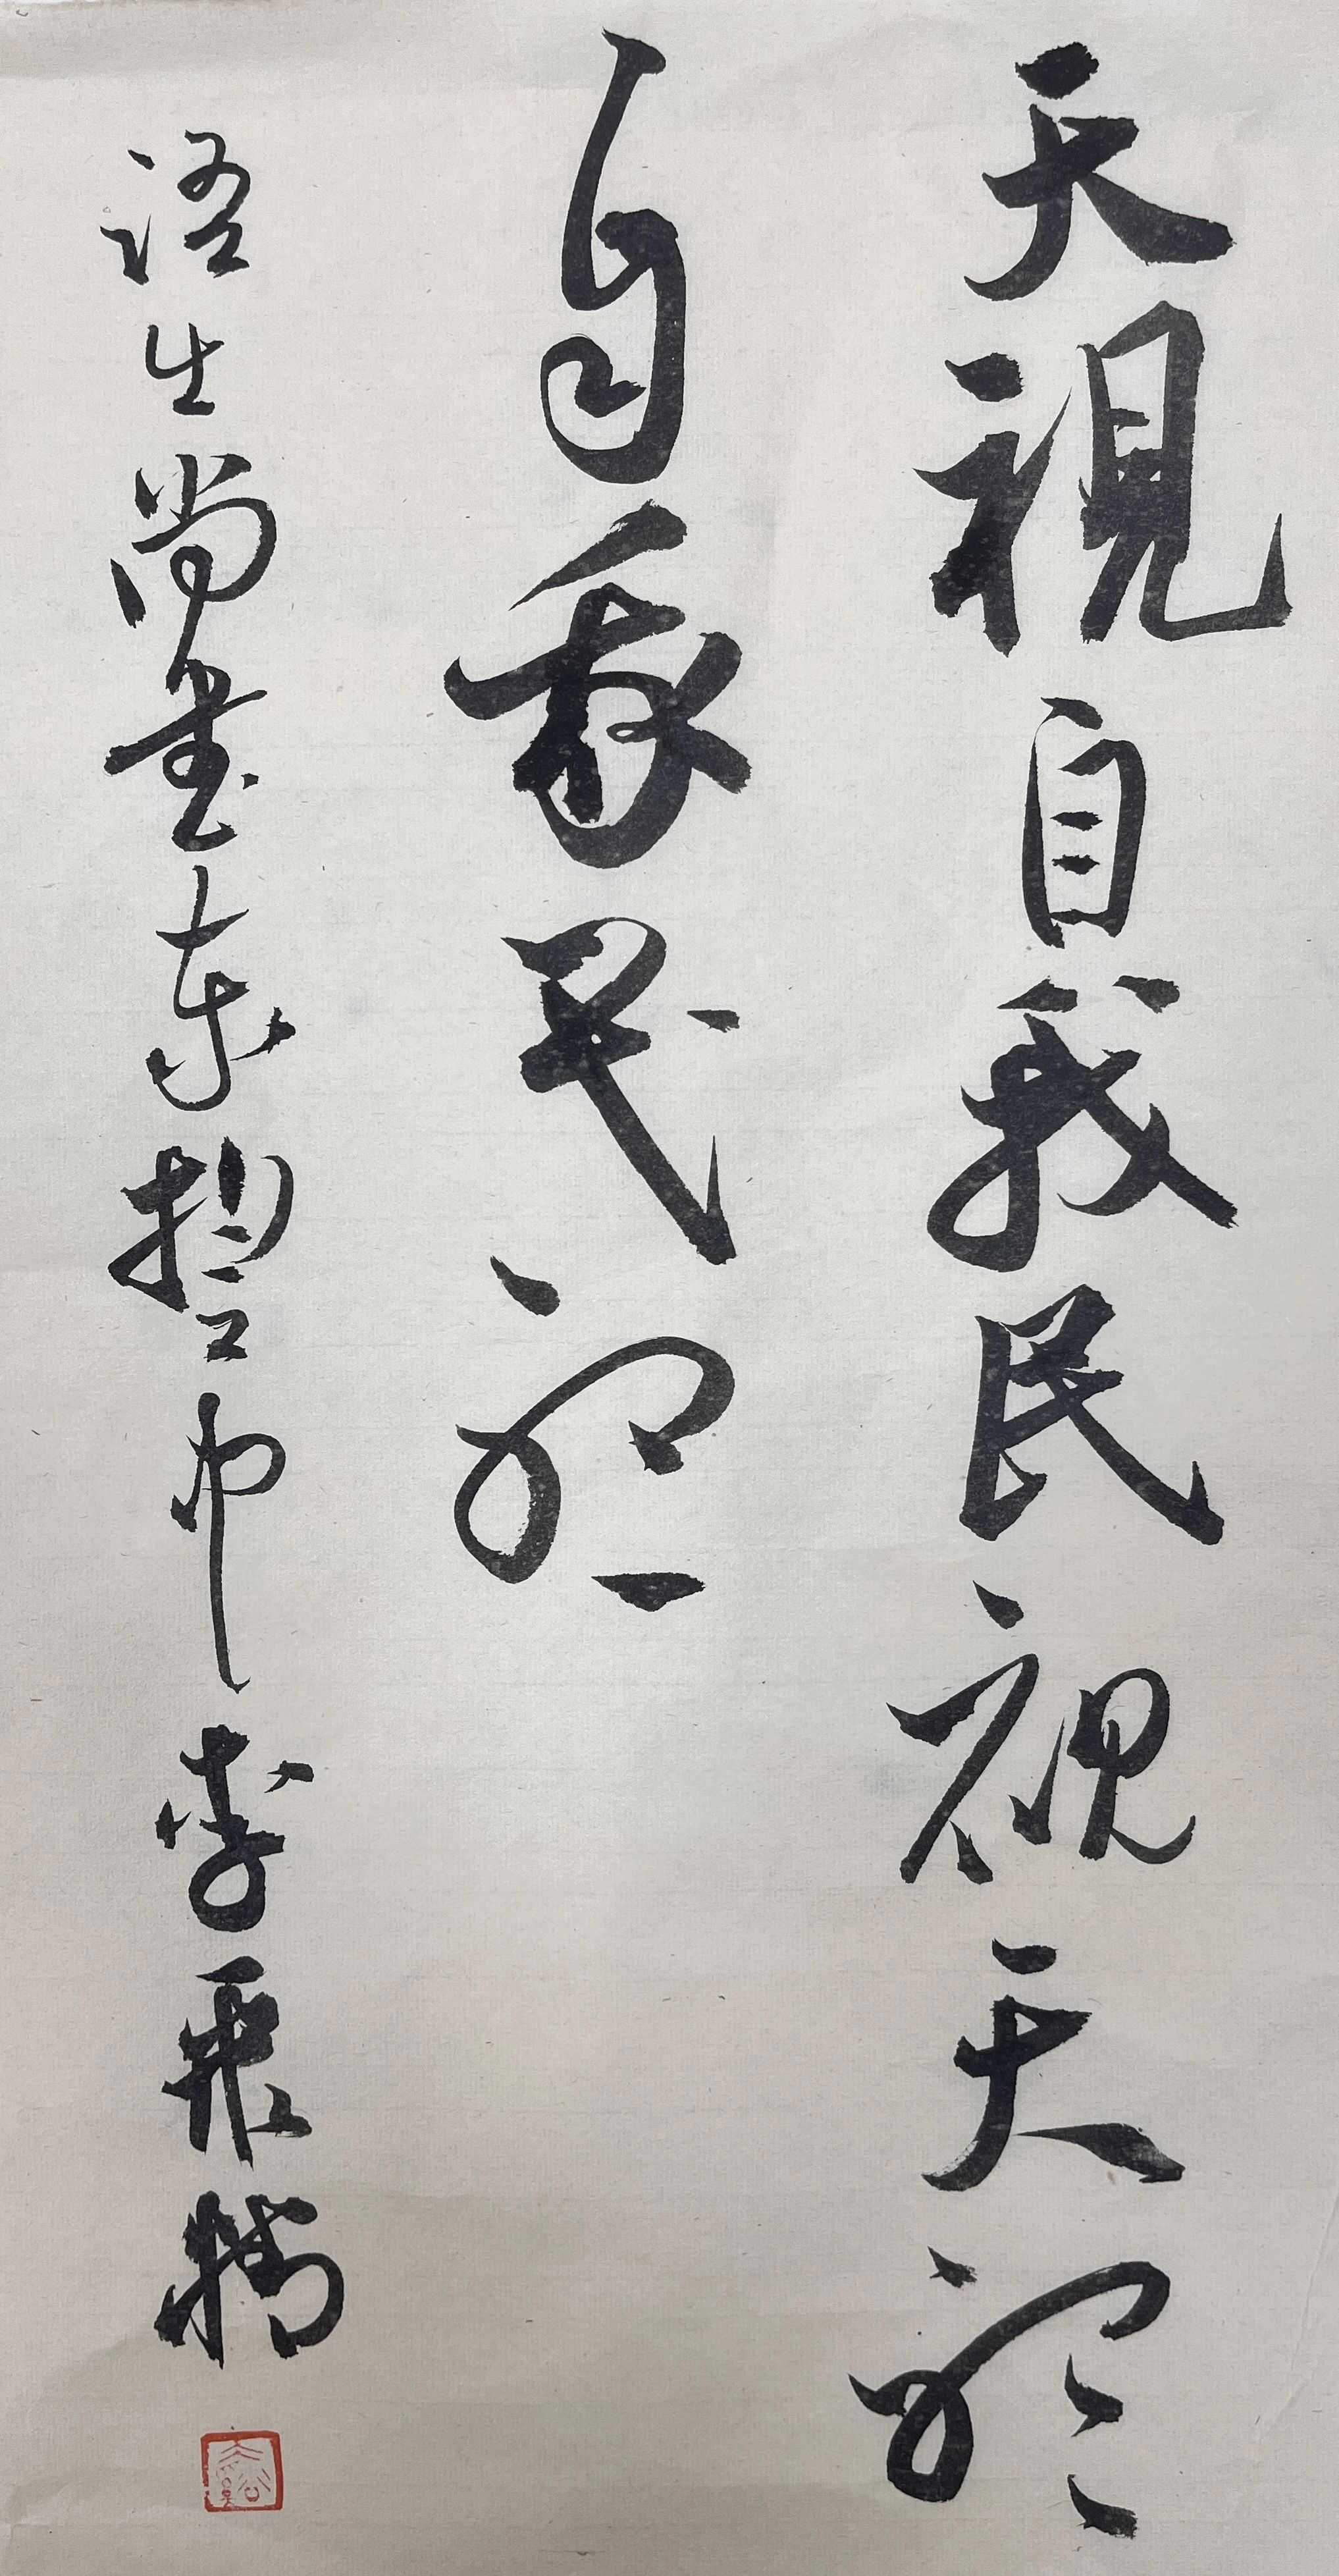 天視自我民視天聽
自我民聽
語出尚書泰誓中李飛鵬